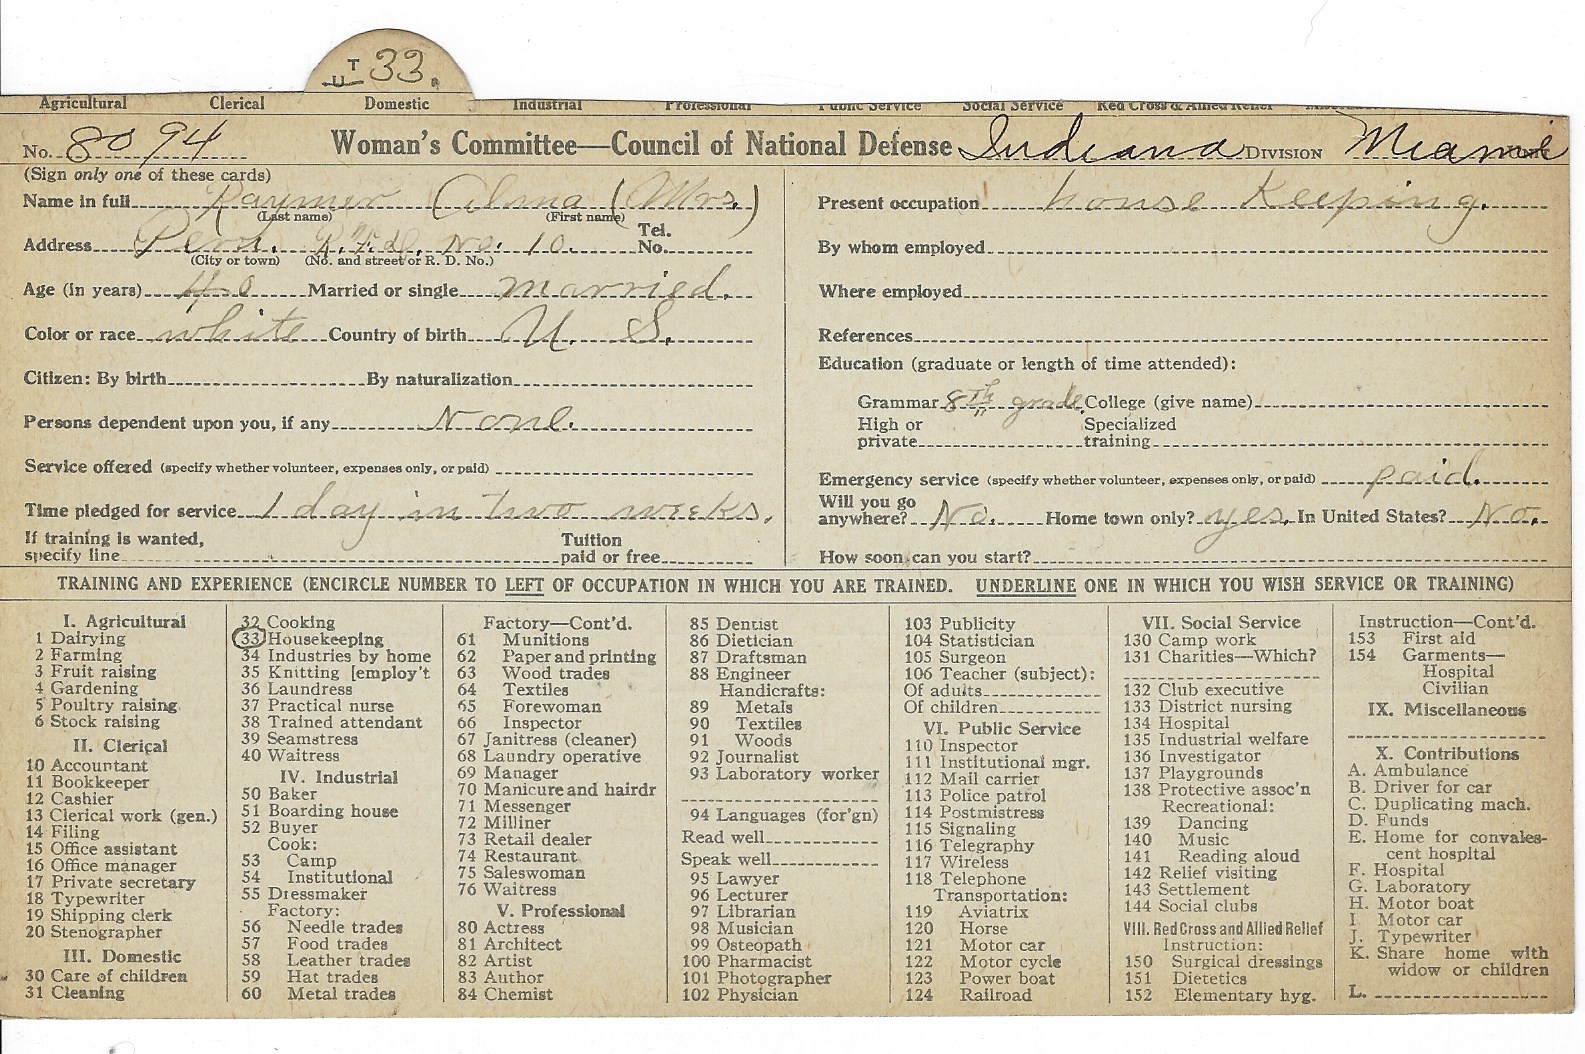 U T 33.
Agricultural Clerical Domestic Industrial Professional Public Service Social Service Red Cross & Allied Relief
No. 8094 Woman's Committee—Council of National Defense Indiana DIVISION Miami
(Sign only one of these cards)
Name in full Raymer Alma (Mrs.)
(Last name) (First name)
Address Peru. R.F.D. No. 10. Tel. No.
(City or town) (No. and street or R. D. No.)
Age (in years) 40 Married or single married.
Color or race white Country of birth U. S.
Citizen: By birth By naturalization
Persons dependent upon you, if any None.
Service offered (specify whether volunteer, expenses only, or paid)
Time pledged for service 1 day in two weeks.
If training is wanted, specify line Tuition paid or free
Present occupation house Keeping.
By whom employed
Where employed
References
Education (graduate or length of time attended):
Grammar 8th grade College (give name)
High or private Specialized training
Emergency service (specify whether volunteer, expenses only, or paid) paid.
Will you go anywhere? No. Home town only? yes. In United States? No.
How soon can you start?
TRAINING AND EXPERIENCE (ENCIRCLE NUMBER TO LEFT OF OCCUPATION IN WHICH YOU ARE TRAINED. UNDERLINE ONE IN WHICH YOU WISH SERVICE OR TRAINING)
I. Agricultural
1 Dairying
2 Farming
3 Fruit raising
4 Gardening
5 Poultry raising
6 Stock raising
II. Clerical
10 Accountant
11 Bookkeeper
12 Cashier
13 Clerical work (gen.)
14 Filing
15 Office assistant
16 Office manager
17 Private secretary
18 Typewriter
19 Shipping clerk
20 Stenographer
III. Domestic
30 Care of children
31 Cleaning
32 Cooking
33 Housekeeping
34 Industries by home
35 Knitting [employ't
36 Laundress
37 Practical nurse
38 Trained attendant
39 Seamstress
40 Waitress
IV. Industrial
50 Baker
51 Boarding house
52 Buyer
Cook:
53 Camp
54 Institutional
55 Dressmaker
Factory:
56 Needle trades
57 Food trades
58 Leather trades
59 Hat trades
60 Metal trades
Factory—Cont'd.
61 Munitions
62 Paper and printing
63 Wood trades
64 Textiles
65 Forewoman
66 Inspector
67 Janitress (cleaner)
68 Laundry operative
69 Manager
70 Manicure and hairdr
71 Messenger
72 Milliner
73 Retail dealer
74 Restaurant
75 Saleswoman
76 Waitress
V. Professional
80 Actress
81 Architect
82 Artist
83 Author
84 Chemist
85 Dentist
86 Dietician
87 Draftsman
88 Engineer
Handicrafts:
89 Metals
90 Textiles
91 Woods
92 Journalist
93 Laboratory worker
94 Languages (for'gn)
Read well
Speak well
95 Lawyer
96 Lecturer
97 Librarian
98 Musician
99 Osteopath
100 Pharmacist
101 Photographer
102 Physician
103 Publicity
104 Statistician
105 Surgeon
106 Teacher (subject):
Of adults
Of children
VI. Public Service
110 Inspector
111 Institutional mgr.
112 Mail carrier
113 Police patrol
114 Postmistress
115 Signaling
116 Telegraphy
117 Wireless
118 Telephone
Transportation:
119 Aviatrix
120 Horse
121 Motor car
122 Motor cycle
123 Power boat
124 Railroad
VII. Social Service
130 Camp work
131 Charities—Which?
132 Club executive
133 District nursing
134 Hospital
135 Industrial welfare
136 Investigator
137 Playgrounds
138 Protective assoc'n
Recreational:
139 Dancing
140 Music
141 Reading aloud
142 Relief visiting
143 Settlement
144 Social clubs
VIII. Red Cross and Allied Relief
Instruction:
150 Surgical dressings
151 Dietetics
152 Elementary hyg.
Instruction—Cont'd.
153 First aid
154 Garments—
Hospital
Civilian
IX. Miscellaneous
X. Contributions
A. Ambulance
B. Driver for car
C. Duplicating mach.
D. Funds
E. Home for convales-
cent hospital
F. Hospital
G. Laboratory
H. Motor boat
I. Motor car
J. Typewriter
K. Share home with
widow or children
L.